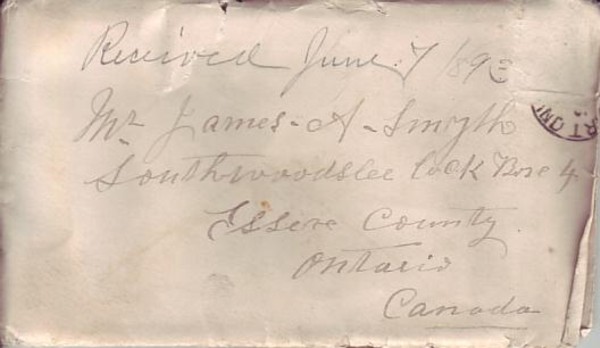 Received June 7 189
Mr James A Smyth
Southwoodslee Lock Box 4
Essex County
Ontario
Canada